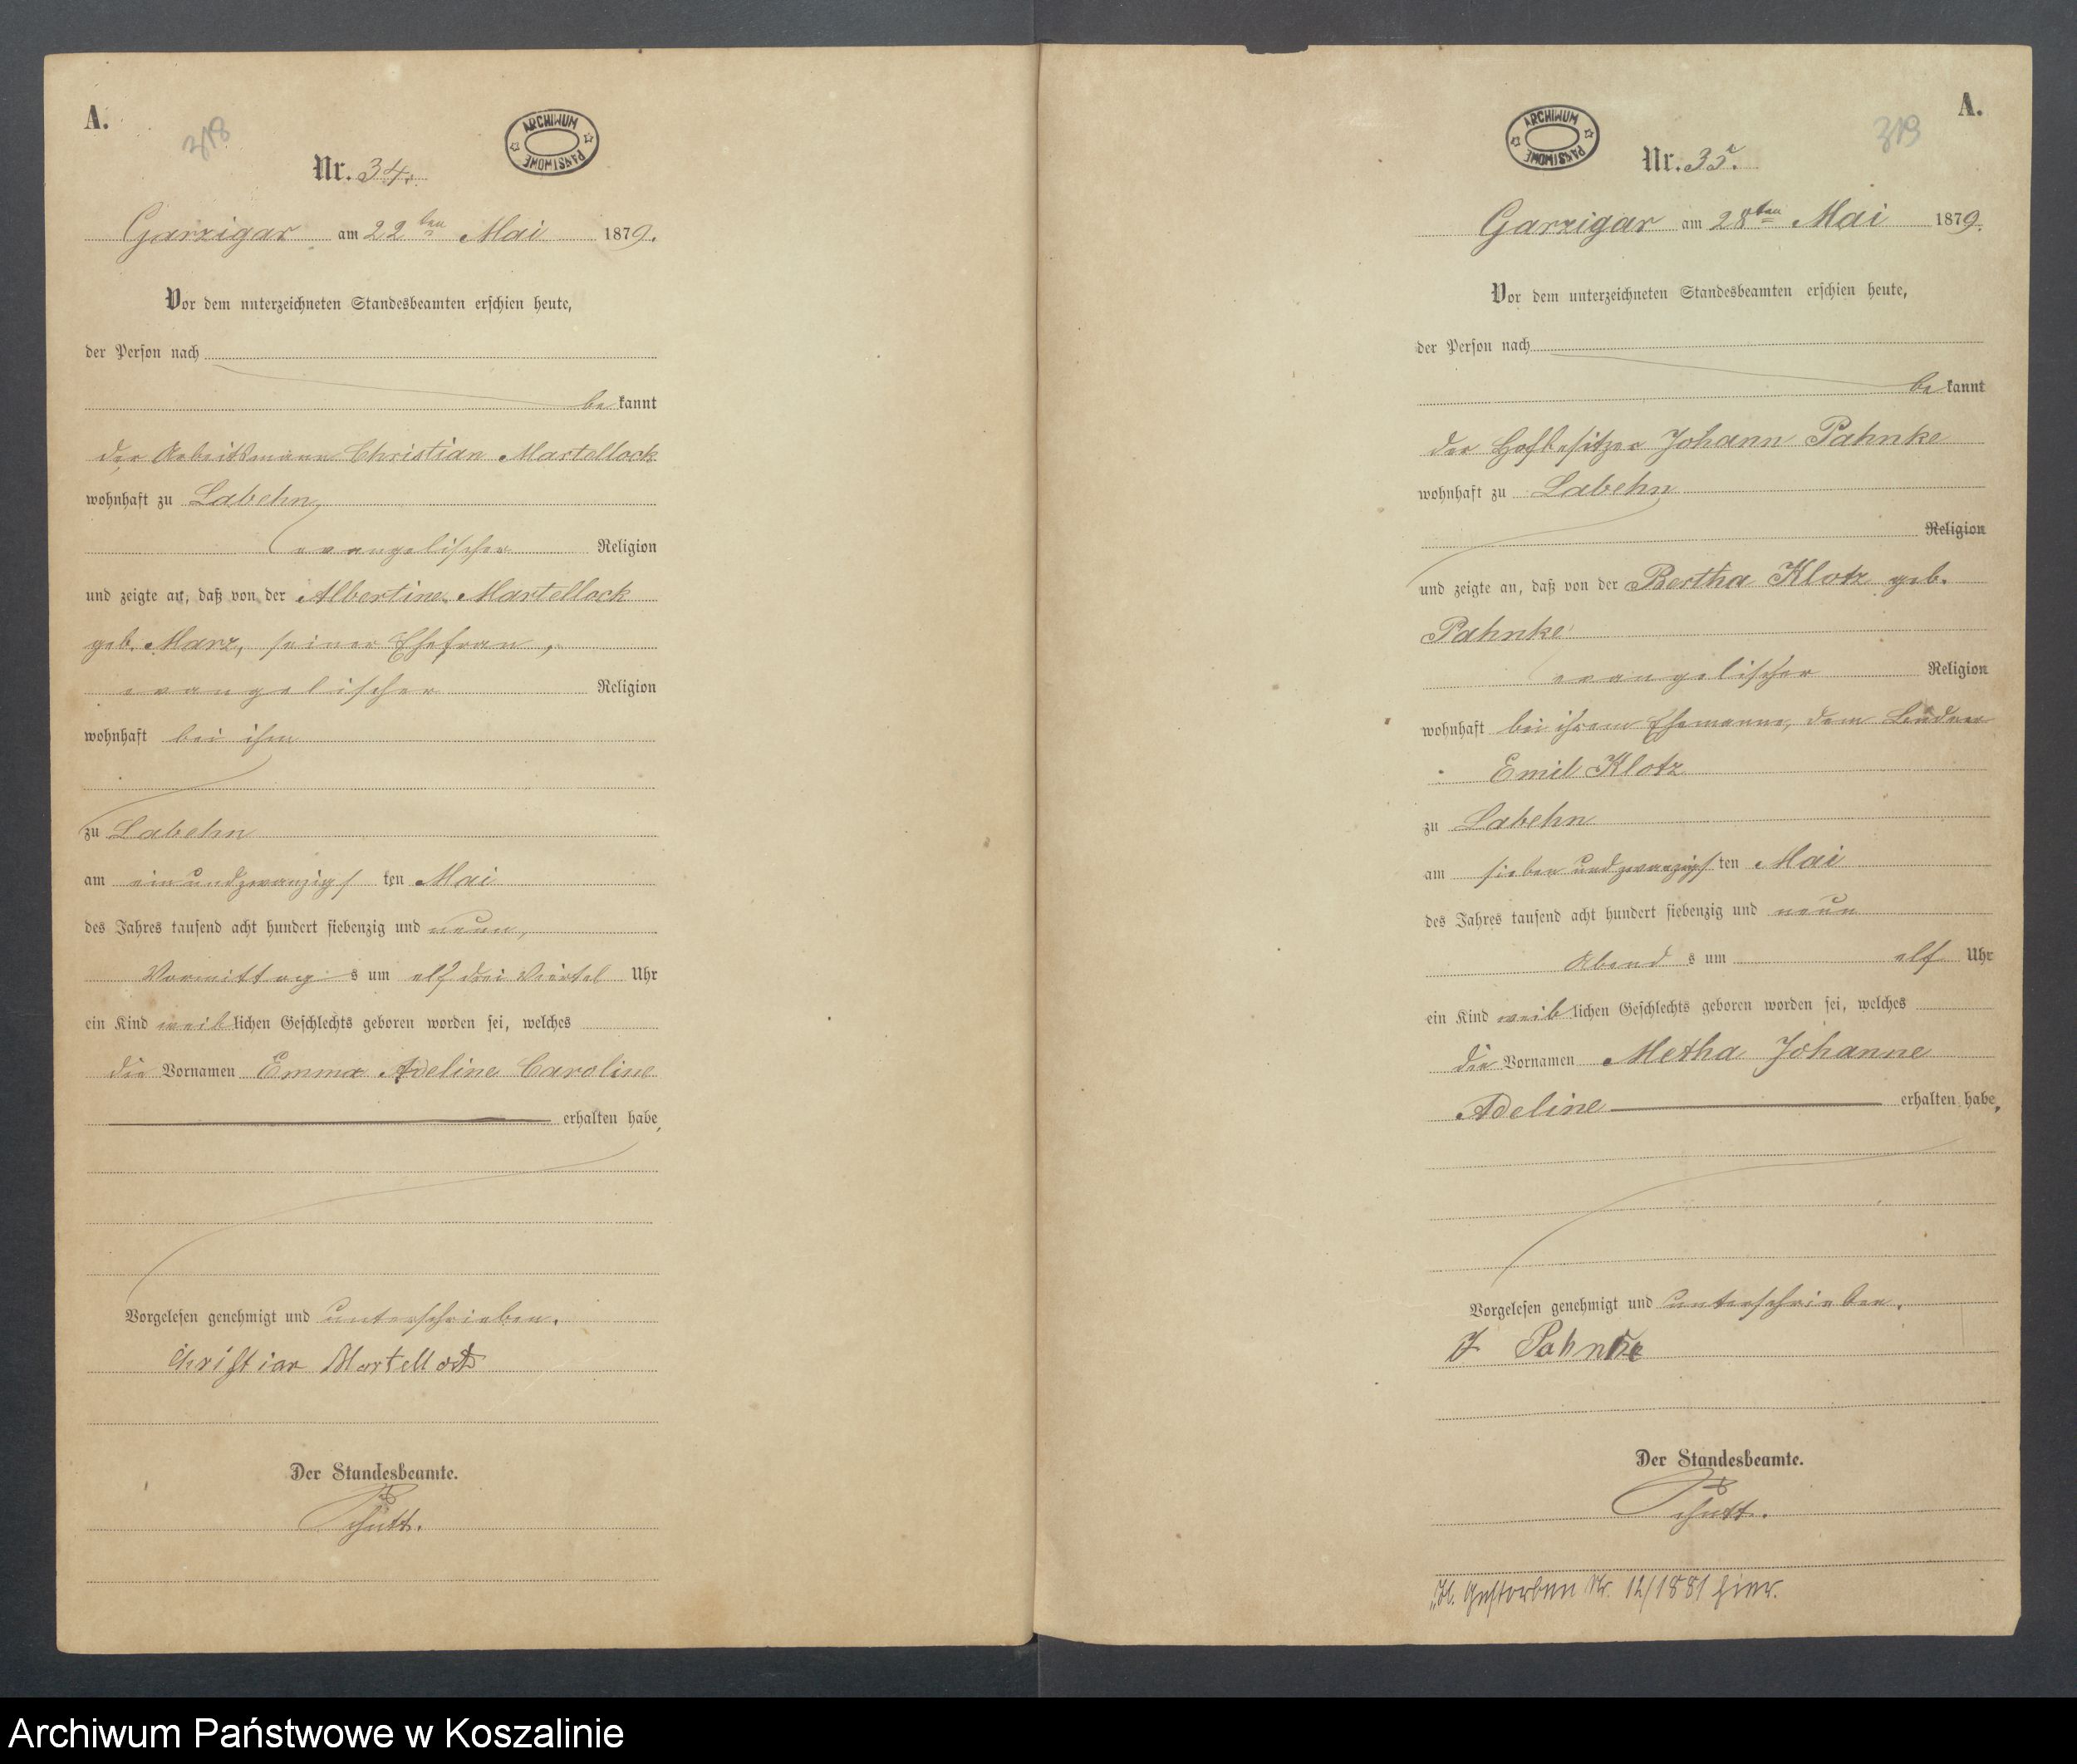 A.
318
ARCHIWUM PAŃSTWOWE
Nr. 34.
Garzigar am 22ten Mai 1879.
Vor dem unterzeichneten Standesbeamten erschien heute,
der Person nach
bekannt
der Arbeitsmann Christian Martellock
wohnhaft zu Labehn,
evangelischer Religion
und zeigte an, daß von der Albertine Martellock
geb. Marz, seiner Ehefrau,
evangelischer Religion
wohnhaft bei ihm
zu Labehn
am ein und zwanzigsten Mai
des Jahres tausend acht hundert siebenzig und neun,
Vormittags um elf drei Viertel Uhr
ein Kind weiblichen Geschlechts geboren worden sei, welches
die Vornamen Emma Adeline Caroline
erhalten habe,
Vorgelesen genehmigt und unterschrieben.
Christian Martellock
Der Standesbeamte.
Schütt.
A.
319
ARCHIWUM PAŃSTWOWE
Nr. 35.
Garzigar am 28ten Mai 1879.
Vor dem unterzeichneten Standesbeamten erschien heute,
der Person nach
bekannt
der Hofbesitzer Johann Pahnke
wohnhaft zu Labehn
Religion
und zeigte an, daß von der Bertha Klotz geb.
Pahnke
evangelischer Religion
wohnhaft bei ihrem Ehemanne, dem
Emil Klotz
zu Labehn
am sieben und zwanzigsten Mai
des Jahres tausend acht hundert siebenzig und neun
Abends um elf Uhr
ein Kind weiblichen Geschlechts geboren worden sei, welches
die Vornamen Metha Johanne
Adeline erhalten habe,
Vorgelesen genehmigt und unterschrieben.
J Pahnke
Der Standesbeamte.
Schütt.
gestorben Nr. 12/1881 hier.
Archiwum Państwowe w Koszalinie